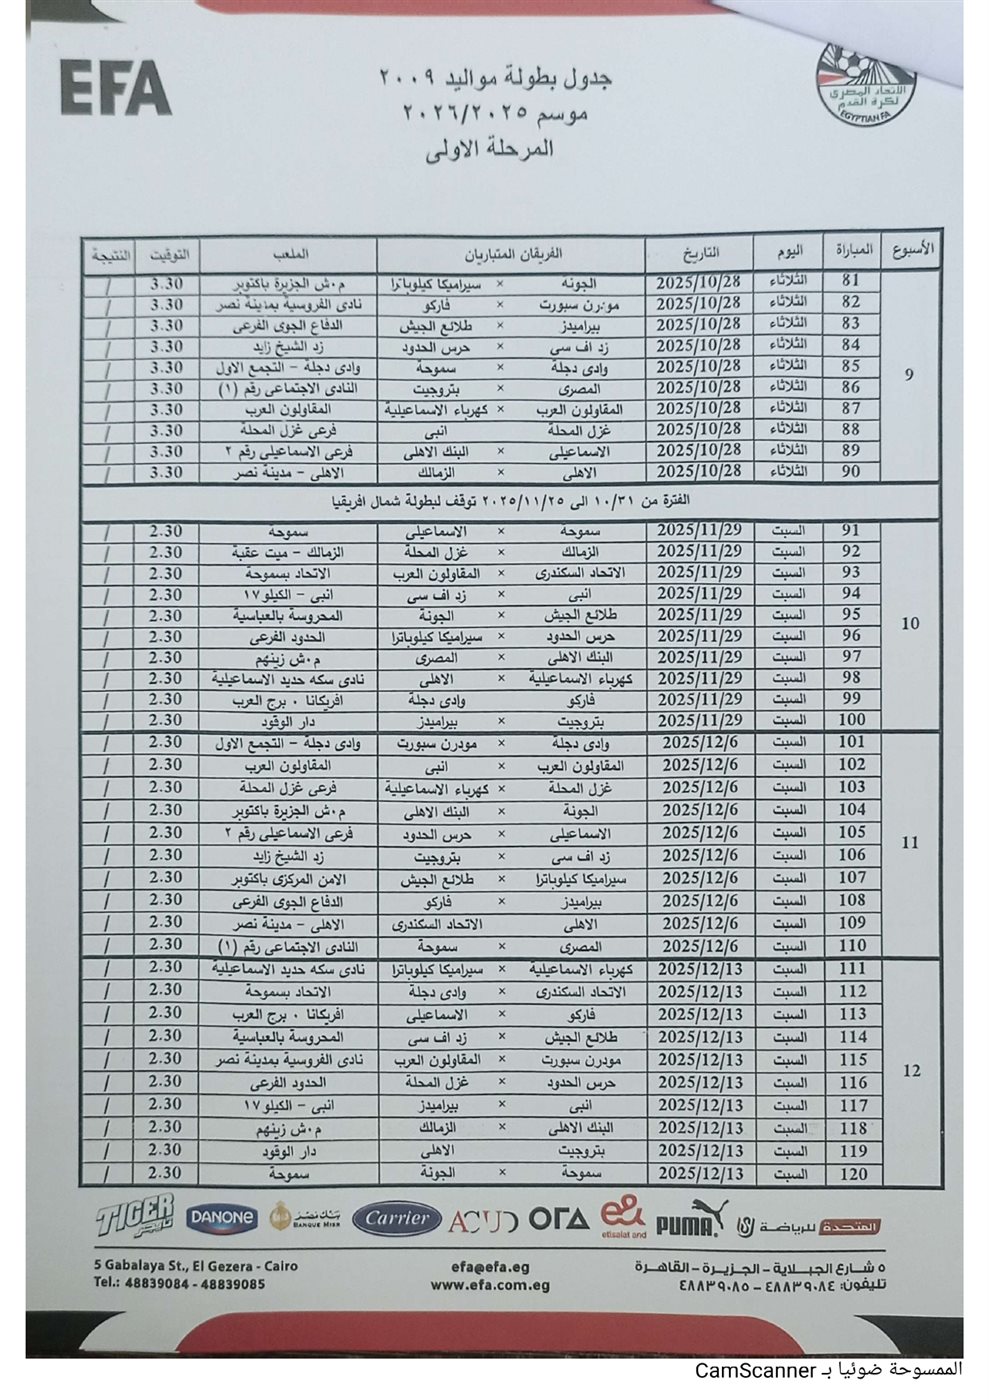 EFA
جدول بطولة مواليد ٢٠٠٩
موسم ٢٠٢٦/٢٠٢٥
المرحلة الاولى
الاتحاد المصرى
لكرة القدم
EGYPTIAN FA
الأسبوع المباراة اليوم التاريخ الفريقان المتباريان الملعب التوقيت النتيجة
9
81 الثلاثاء 2025/10/28 الجونة × سيراميكا كيلوباترا م.ش الجزيرة باكتوبر 3.30 /
82 الثلاثاء 2025/10/28 مودرن سبورت × فاركو نادى الفروسية بمدينة نصر 3.30 /
83 الثلاثاء 2025/10/28 بيراميدز × طلائع الجيش الدفاع الجوى الفرعى 3.30 /
84 الثلاثاء 2025/10/28 زد اف سى × حرس الحدود زد الشيخ زايد 3.30 /
85 الثلاثاء 2025/10/28 وادى دجلة × سموحة وادى دجلة - التجمع الاول 3.30 /
86 الثلاثاء 2025/10/28 المصرى × بتروجيت النادى الاجتماعى رقم (١) 3.30 /
87 الثلاثاء 2025/10/28 المقاولون العرب × كهرباء الاسماعيلية المقاولون العرب 3.30 /
88 الثلاثاء 2025/10/28 غزل المحلة × انبى فرعى غزل المحلة 3.30 /
89 الثلاثاء 2025/10/28 الاسماعيلى × البنك الاهلى فرعى الاسماعيلى رقم ٢ 3.30 /
90 الثلاثاء 2025/10/28 الاهلى × الزمالك الاهلى - مدينة نصر 3.30 /
الفترة من ١٠/٣١ الى ٢٠٢٥/١١/٢٥ توقف لبطولة شمال افريقيا
10
91 السبت 2025/11/29 سموحة × الاسماعيلى سموحة 2.30 /
92 السبت 2025/11/29 الزمالك × غزل المحلة الزمالك - ميت عقبة 2.30 /
93 السبت 2025/11/29 الاتحاد السكندرى × المقاولون العرب الاتحاد بسموحة 2.30 /
94 السبت 2025/11/29 انبى × زد اف سى انبى - الكيلو ١٧ 2.30 /
95 السبت 2025/11/29 طلائع الجيش × الجونة المحروسة بالعباسية 2.30 /
96 السبت 2025/11/29 حرس الحدود × سيراميكا كيلوباترا الحدود الفرعى 2.30 /
97 السبت 2025/11/29 البنك الاهلى × المصرى م.ش زينهم 2.30 /
98 السبت 2025/11/29 كهرباء الاسماعيلية × الاهلى نادى سكه حديد الاسماعيلية 2.30 /
99 السبت 2025/11/29 فاركو × وادى دجلة افريكانا . برج العرب 2.30 /
100 السبت 2025/11/29 بتروجيت × بيراميدز دار الوقود 2.30 /
11
101 السبت 2025/12/6 وادى دجلة × مودرن سبورت وادى دجلة - التجمع الاول 2.30 /
102 السبت 2025/12/6 المقاولون العرب × انبى المقاولون العرب 2.30 /
103 السبت 2025/12/6 غزل المحلة × كهرباء الاسماعيلية فرعى غزل المحلة 2.30 /
104 السبت 2025/12/6 الجونة × البنك الاهلى م.ش الجزيرة باكتوبر 2.30 /
105 السبت 2025/12/6 الاسماعيلى × حرس الحدود فرعى الاسماعيلى رقم ٢ 2.30 /
106 السبت 2025/12/6 زد اف سى × بتروجيت زد الشيخ زايد 2.30 /
107 السبت 2025/12/6 سيراميكا كيلوباترا × طلائع الجيش الامن المركزى باكتوبر 2.30 /
108 السبت 2025/12/6 بيراميدز × فاركو الدفاع الجوى الفرعى 2.30 /
109 السبت 2025/12/6 الاهلى × الاتحاد السكندرى الاهلى - مدينة نصر 2.30 /
110 السبت 2025/12/6 المصرى × سموحة النادى الاجتماعى رقم (١) 2.30 /
12
111 السبت 2025/12/13 كهرباء الاسماعيلية × سيراميكا كيلوباترا نادى سكه حديد الاسماعيلية 2.30 /
112 السبت 2025/12/13 الاتحاد السكندرى × وادى دجلة الاتحاد بسموحة 2.30 /
113 السبت 2025/12/13 فاركو × الاسماعيلى افريكانا . برج العرب 2.30 /
114 السبت 2025/12/13 طلائع الجيش × زد اف سى المحروسة بالعباسية 2.30 /
115 السبت 2025/12/13 مودرن سبورت × المقاولون العرب نادى الفروسية بمدينة نصر 2.30 /
116 السبت 2025/12/13 حرس الحدود × غزل المحلة الحدود الفرعى 2.30 /
117 السبت 2025/12/13 انبى × بيراميدز انبى - الكيلو ١٧ 2.30 /
118 السبت 2025/12/13 البنك الاهلى × الزمالك م.ش زينهم 2.30 /
119 السبت 2025/12/13 بتروجيت × الاهلى دار الوقود 2.30 /
120 السبت 2025/12/13 سموحة × الجونة سموحة 2.30 /
TIGER تايجر DANONE بنك مصر BANQUE MISR Carrier ACUD ORA e& etisalat and PUMA المتحدة للرياضة
5 Gabalaya St., El Gezera - Cairo
Tel.: 48839084 - 48839085
efa@efa.eg
www.efa.com.eg
٥ شارع الجبلاية - الجزيرة - القاهرة
تليفون: ٤٨٨٣٩٠٨٤ - ٤٨٨٣٩٠٨٥
الممسوحة ضوئيا بـ CamScanner